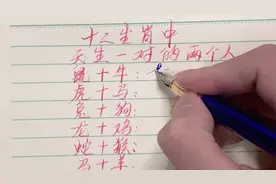 十二生肖中
天生一对的两个人
鼠+牛：
虎+马：
兔+狗：
龙+鸡：
蛇+猴：
马+羊：